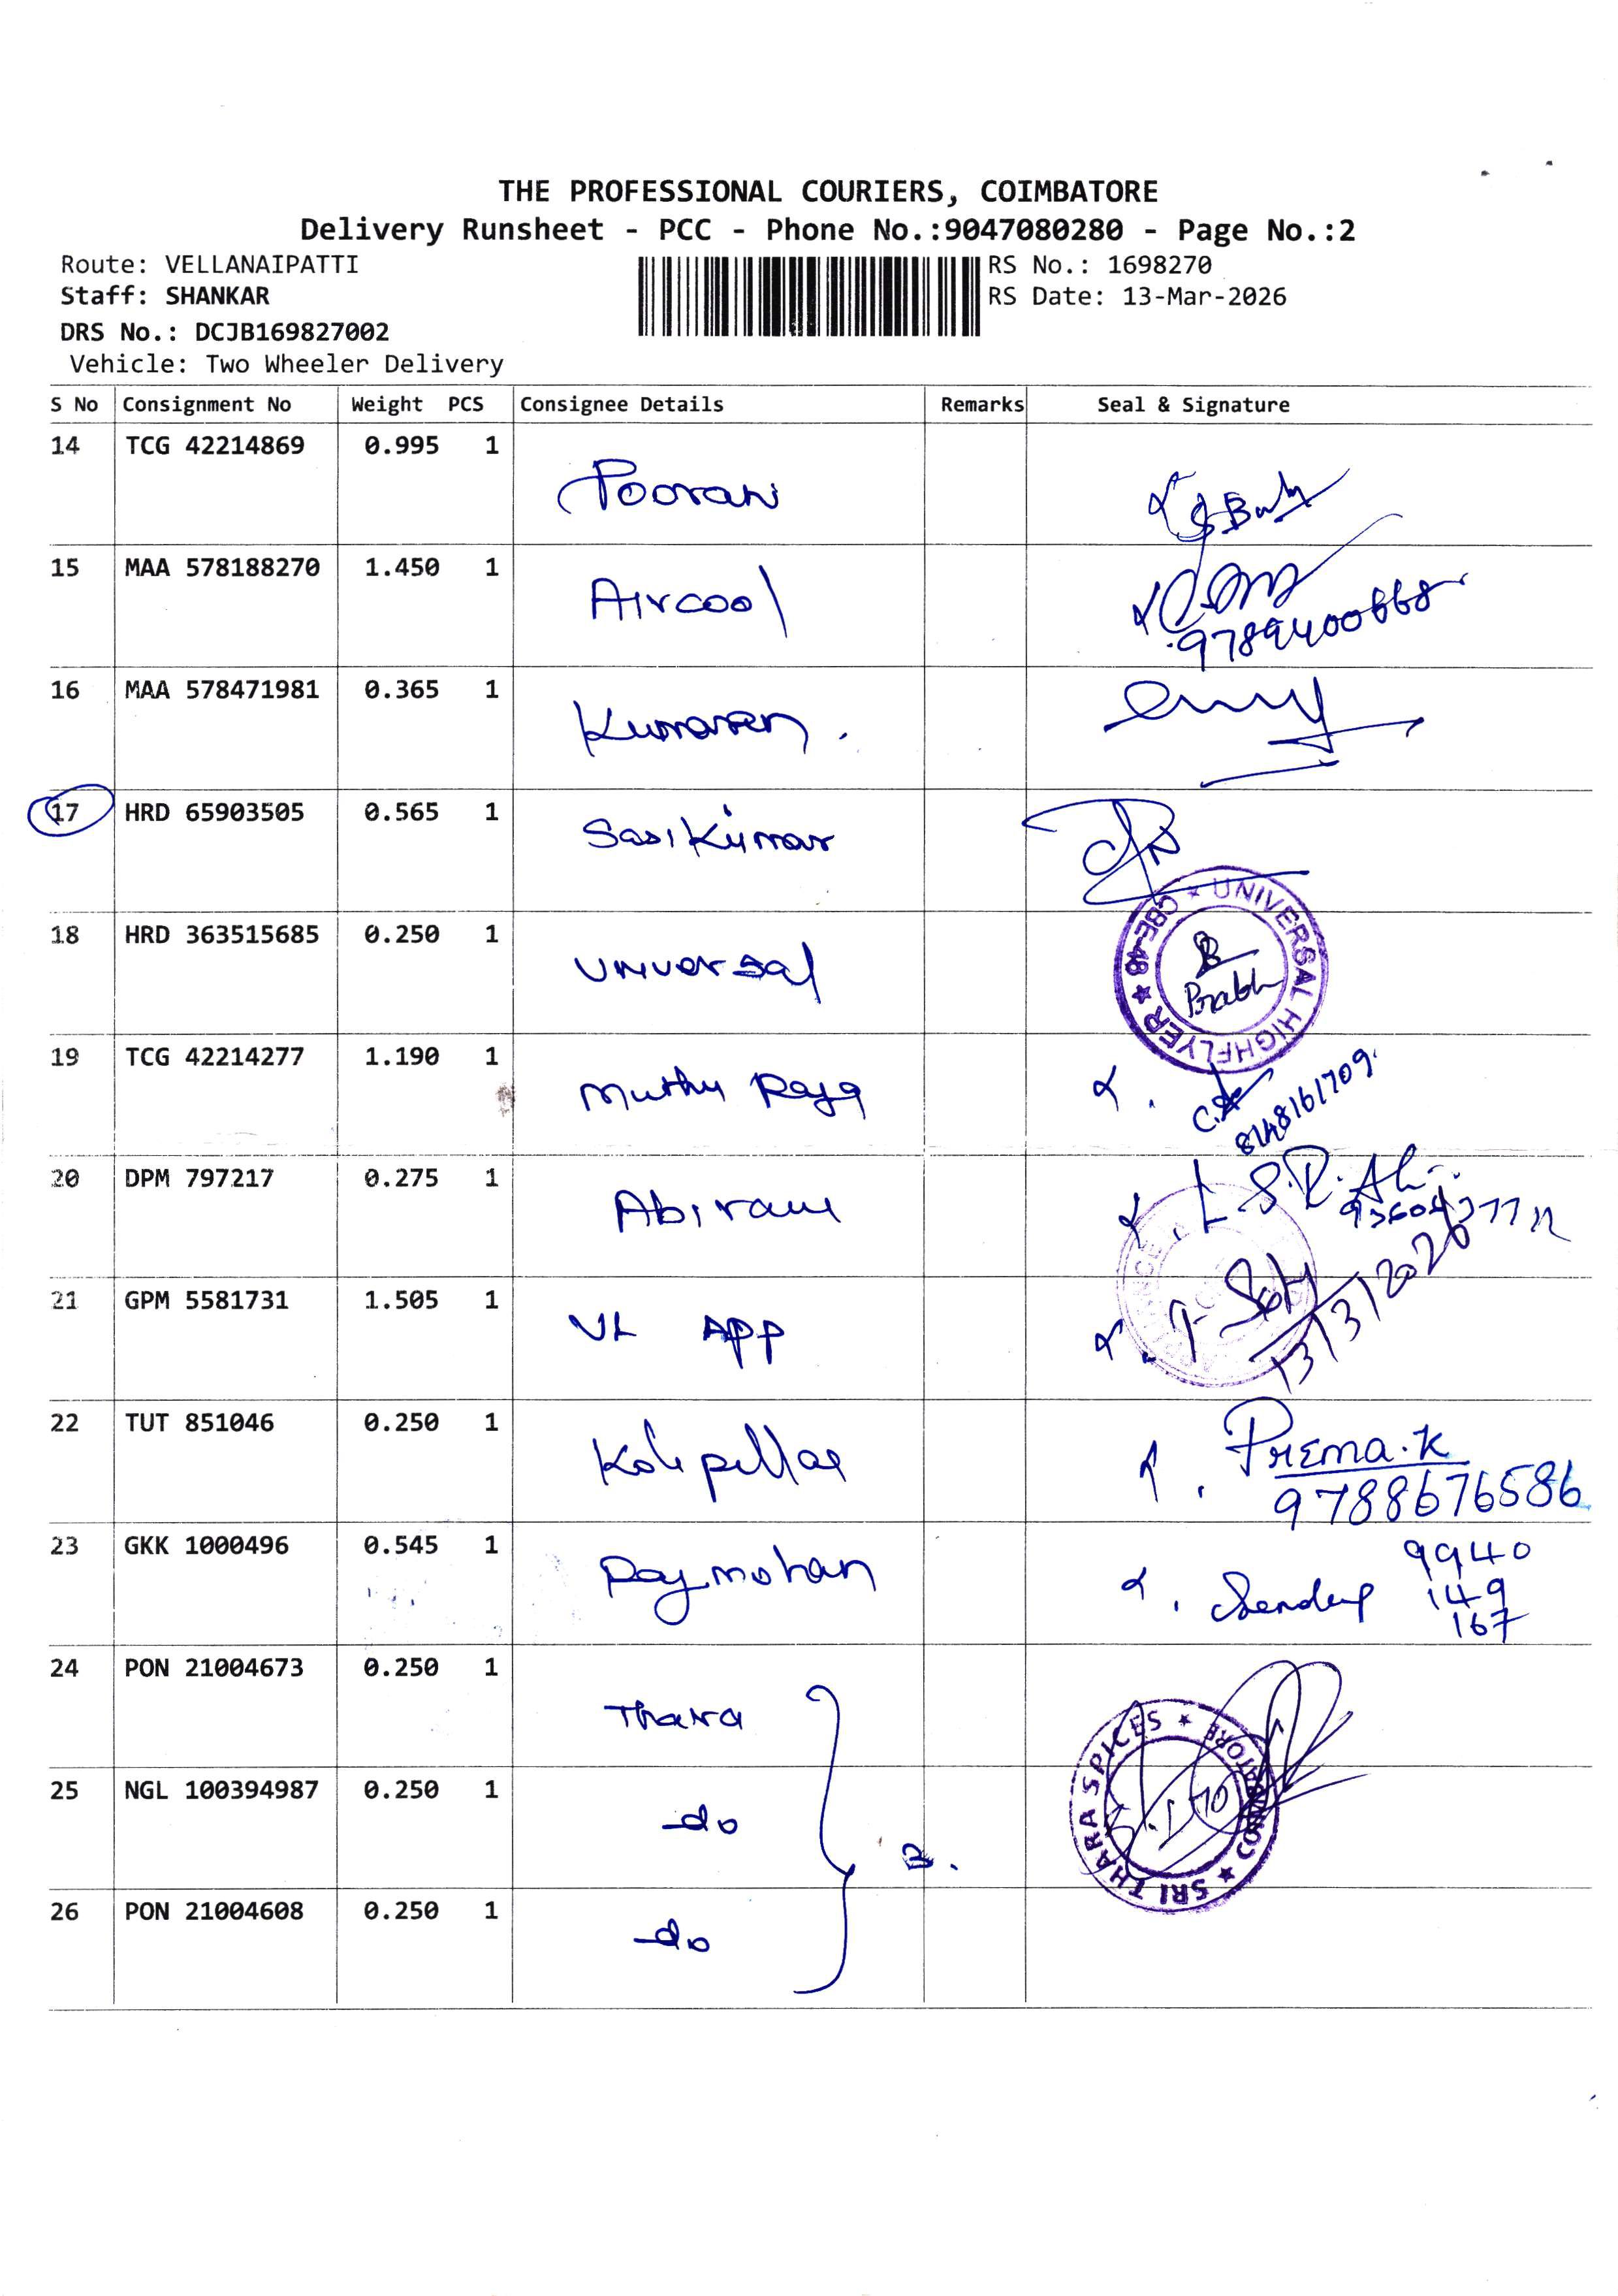 THE PROFESSIONAL COURIERS, COIMBATORE
Delivery Runsheet - PCC - Phone No.:9047080280 - Page No.:2
Route: VELLANAIPATTI
RS No.: 1698270
Staff: SHANKAR
RS Date: 13-Mar-2026
DRS No.: DCJB169827002
Vehicle: Two Wheeler Delivery
S No Consignment No Weight PCS Consignee Details Remarks Seal & Signature
14 TCG 42214869 0.995 1 Poorani
15 MAA 578188270 1.450 1 Aircool
9789400668
16 MAA 578471981 0.365 1 Kumaran.
17 HRD 65903505 0.565 1 SasiKumar
18 HRD 363515685 0.250 1 Universal
UNIVERSAL HIGHFLYER ★ CBE-48 ★
Prabh
19 TCG 42214277 1.190 1 Muthu Raja
8148161709
20 DPM 797217 0.275 1 Abirami
21 GPM 5581731 1.505 1 VL APP
13/3/2026
22 TUT 851046 0.250 1 Prema.K
9788676586
23 GKK 1000496 0.545 1 Rajmohan
9940
149
167
24 PON 21004673 0.250 1 Thara
25 NGL 100394987 0.250 1 do
3.
SRI THARA SPICES ★ COIMBATORE ★
26 PON 21004608 0.250 1 do